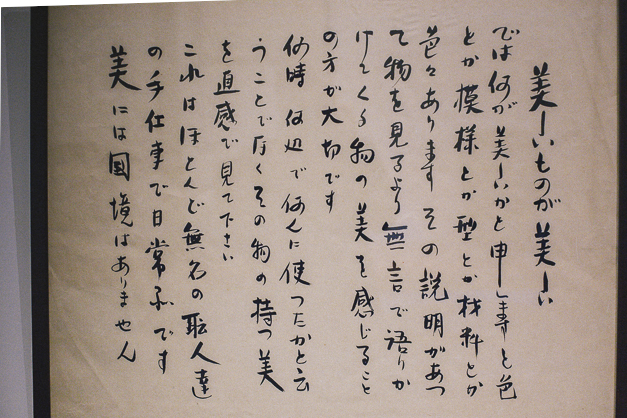 美しいものが美しい
では何が美しいかと申しますと色
とか模様とか型とか材料とか
色々あります その説明があつ
て物を見るより無言で語りか
けてくる物の美を感じること
の方が大切です
何時 何辺で何んに使つたかと云
うことでなくその物の持つ美
を直感で見て下さい
これはほとんど無名の職人達
の手仕事で日常品です
美には国境はありません